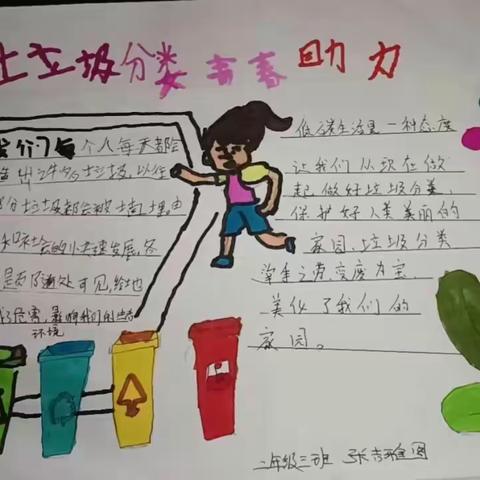 垃圾分类 青春助力
个人每天都会
出许多垃圾，以往
分垃圾都会被填埋，由
的快速发展，各
处可见，给地
危害，影响我们的生态
环境
低碳生活是一种态度
让我们从现在做
起做好垃圾分类，
保护好人类美丽的
家园，垃圾分类
举手之劳，变废为宝，
美化了我们的
家园。
二年级三班 张